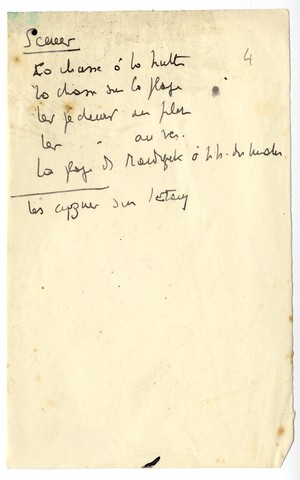 Scènes
4
La chasse à la hutte
La chasse sur la plage
Les pêcheurs au filet
Les " au ver.
La plage de à h. du matin
Les cygnes sur l'étang